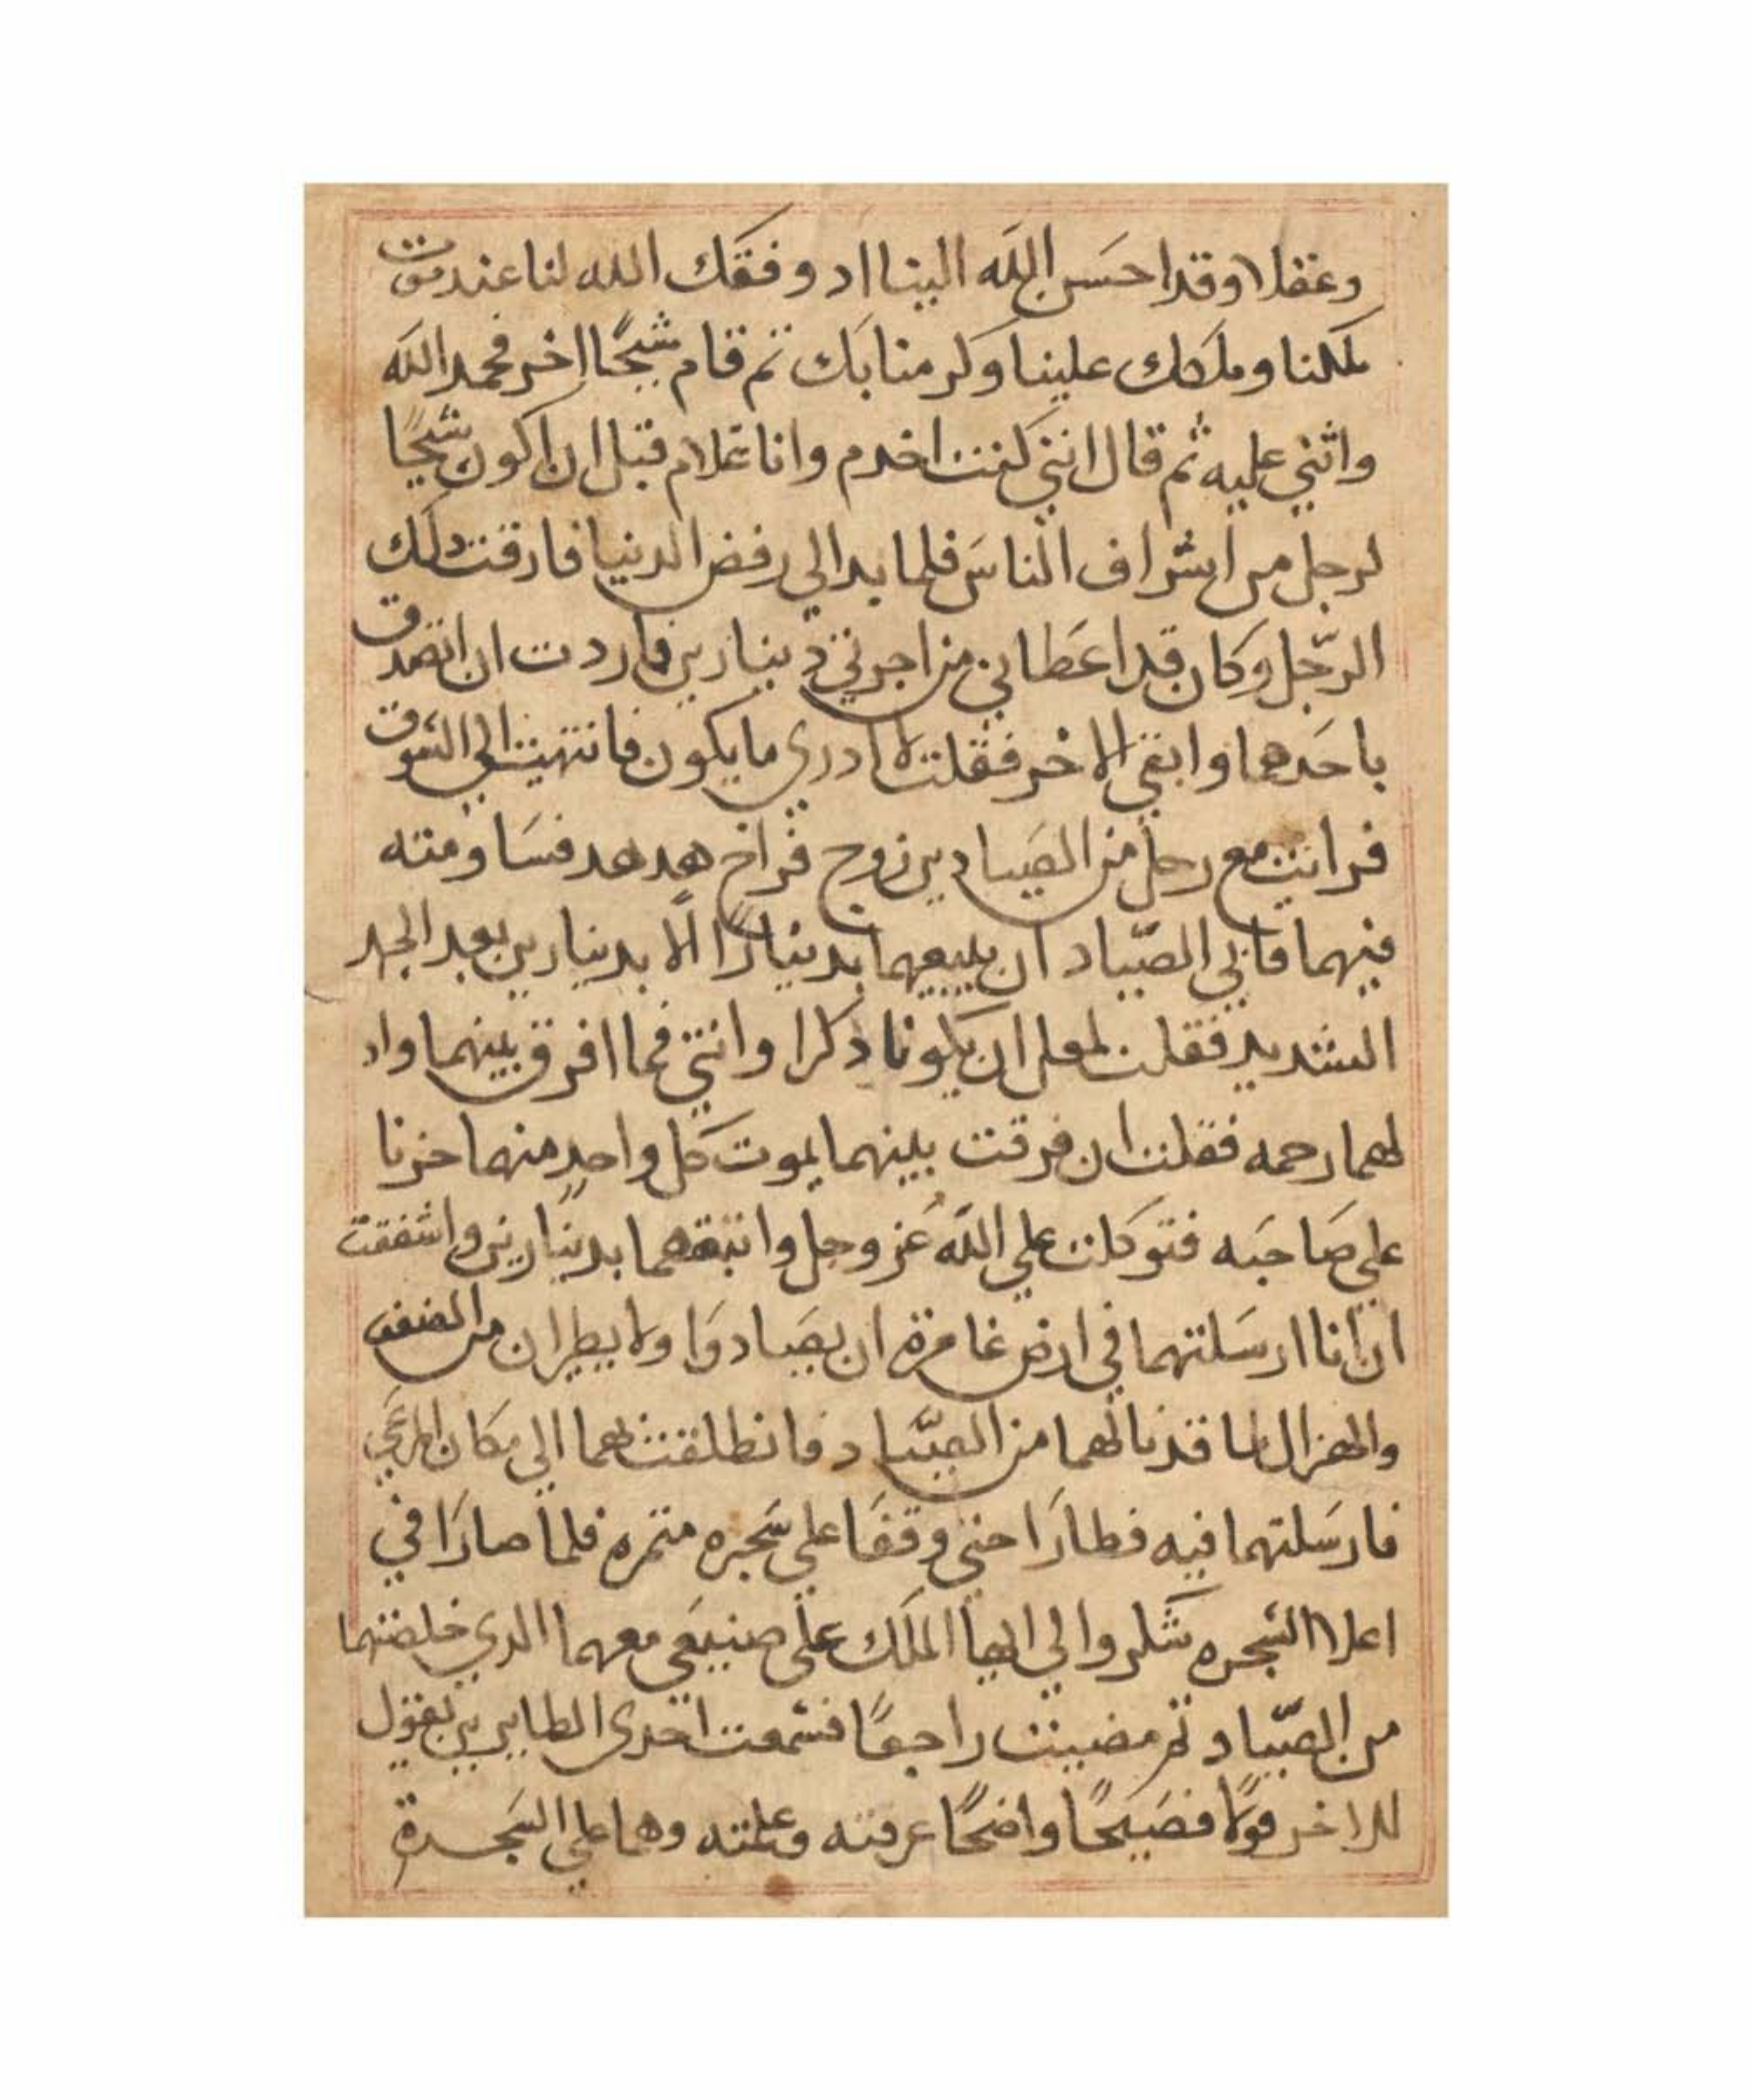 وعقلا وقد احسن الله الينا اد وفقك الله لنا عند موت
ملكنا وملكك علينا وكرمنا بك تم قام شيخًا اخر فحمد الله
واثني عليه ثم قال انني كنت اخدم وانا غلام قبل ان اكون شيخًا
لرجل من اشراف الناس فلما بدا لي رفض الدنيا فارقت دلك
الرّجل وكان قد اعطاني من اجرتي دينارين فاردت ان اتصدق
باحدهما وابقي الاخر فقلت لا ادري ما يكون فانتهيت الي السوق
فرايت مع رجل من الصيادين زوج فراخ هدهد فساومته
فيهما فابي الصّياد ان يبيعهما بدينارًا الا بدينارين بعد الجهد
الشديد فقلت لعل ان يكونا دكرا وانتي فما افرق بينهما واد
لهما رحمه فقلت ان فرقت بينهما يموت كل واحدٍ منهما حزنا
علي صاحبه فتوكلت علي الله عز وجل وابتعتهما بدينارين واشفقت
ان انا ارسلتهما في ارض غامرة ان يصادوا ولا يطيران من الضعف
والهزال لما قد نالهما من الصّياد فانطلقت بهما الي مكان المرعي
فارسلتهما فيه فطارا حتي وقفا علي شجره متمره فلما صارا في
اعلا الشجره شكروا لي ايها الملك علي صنيعي معهما الدي خلصتهما
من الصّياد تم مضيت راجعًا فسمعت احدى الطايرين يقول
للاخر قولا فصيحًا واضحًا عرفته وعلمته وهما علي الشجرة